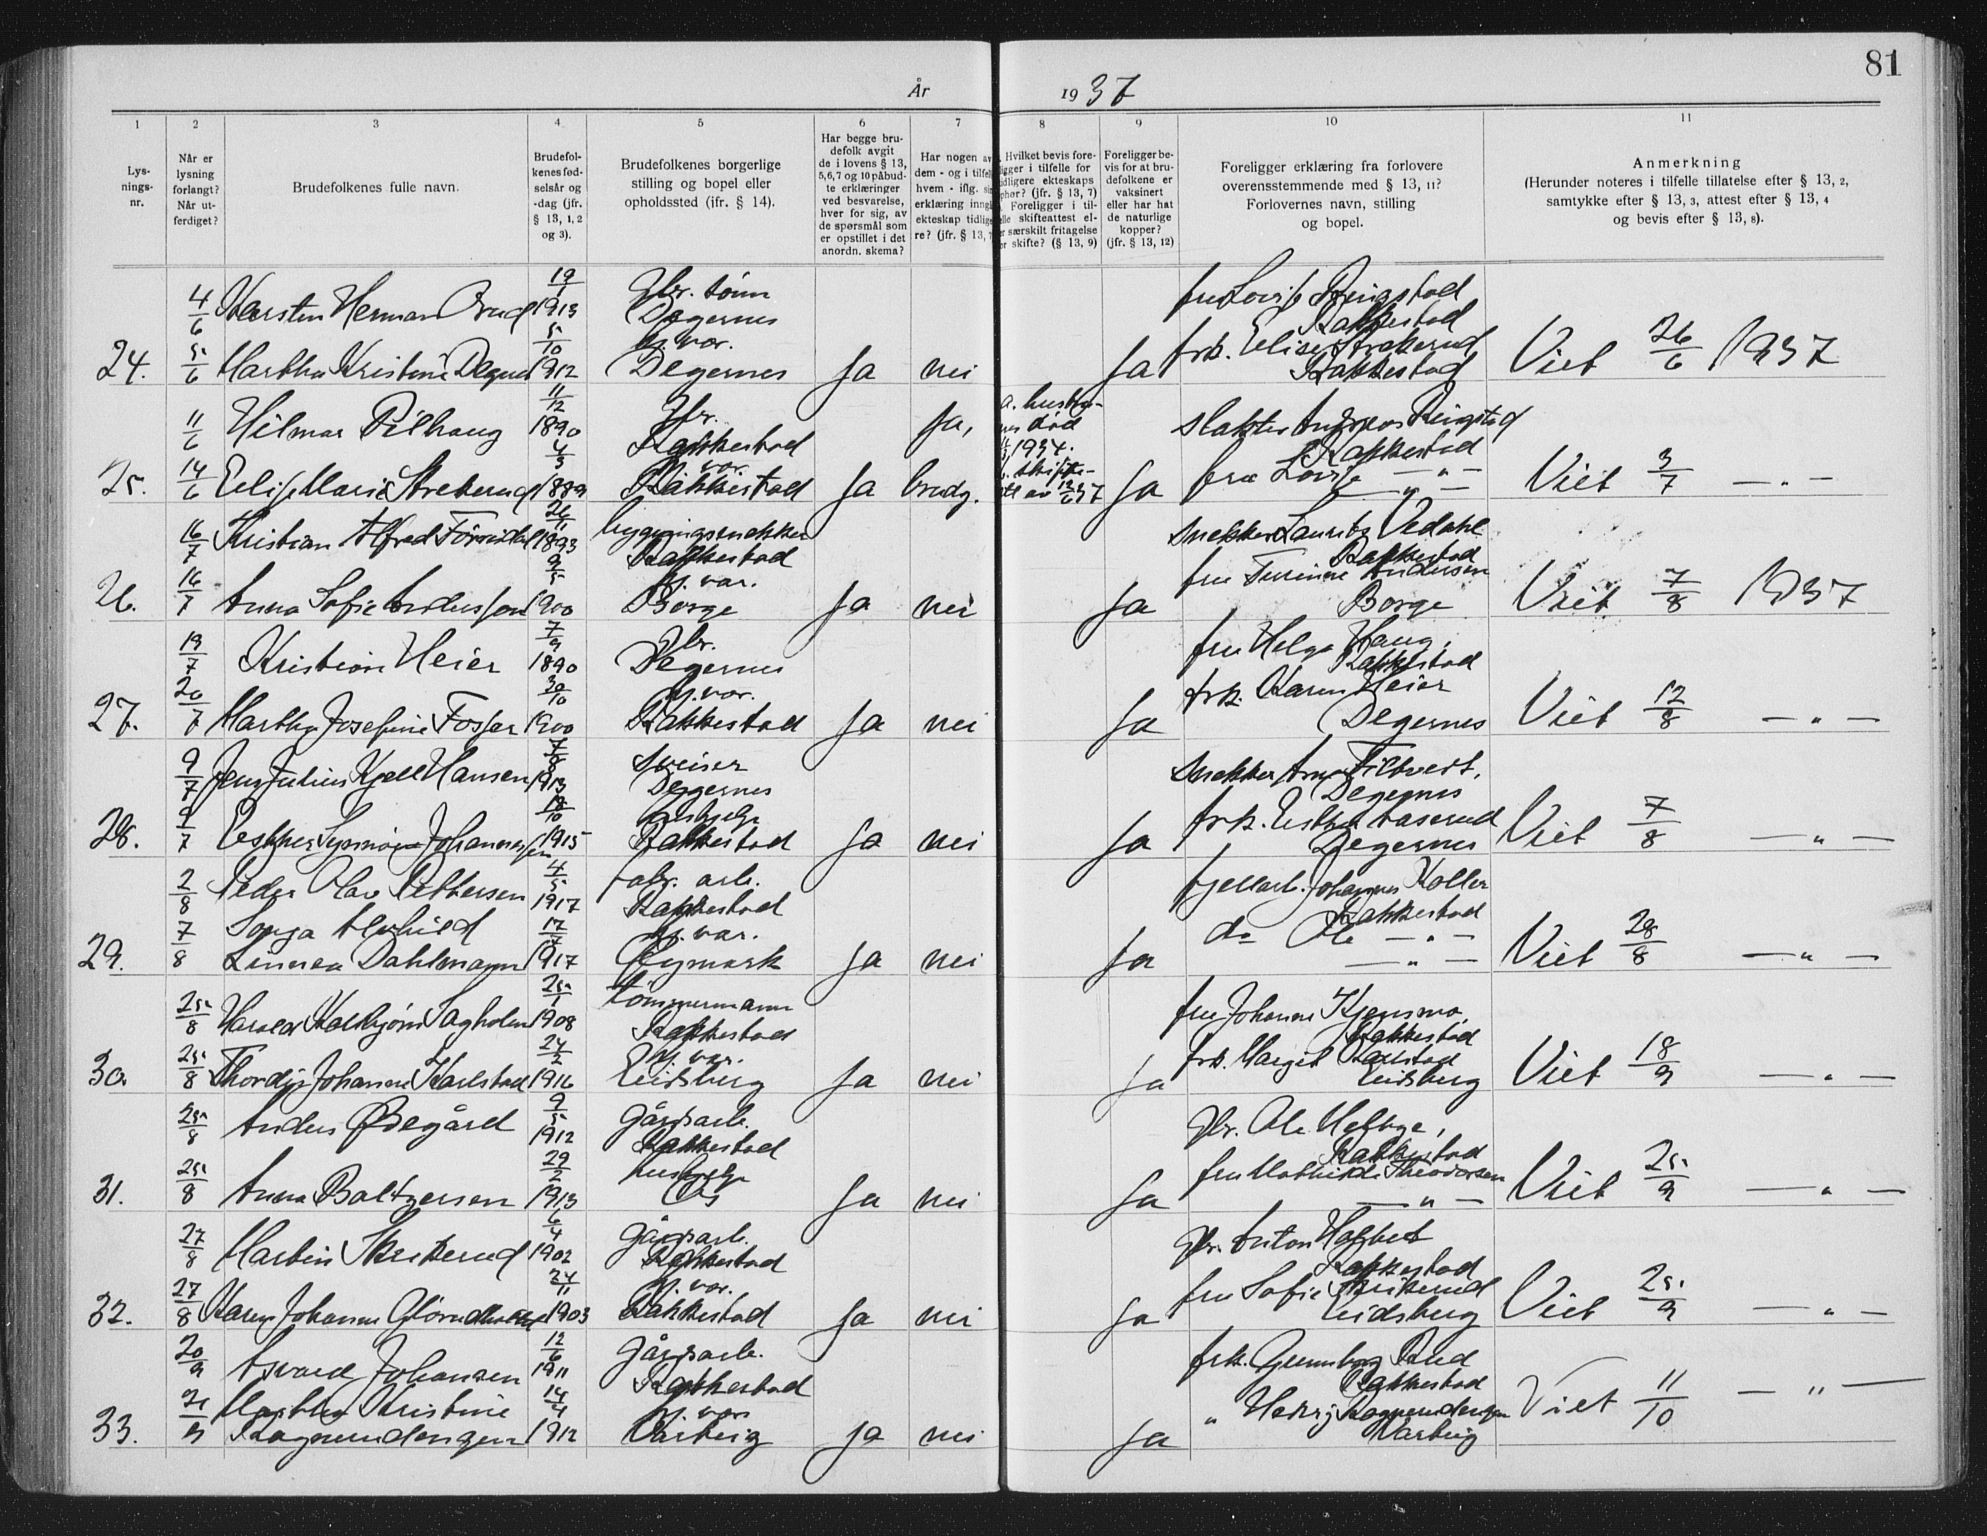 81
År 1937
1 2 3 4 5 6 7 8 9 10 11
Lys-
nings-
nr.
Når er
lysning
forlangt?
Når ut-
ferdiget?
Brudefolkenes fulle navn.
Brudefol-
kenes fød-
selsår og
-dag (jfr.
§ 13, 1, 2
og 3).
Brudefolkenes borgerlige
stilling og bopel eller
opholdssted (ifr. § 14).
Har begge bru-
defolk avgit
de i lovens § 13,
5,6,7 og 10 påbud-
te erklæringer
ved besvarelse,
hver for sig, av
de spørsmål som
er opstillet i det
anordn. skema?
Har nogen av
dem - og i tilfelle
hvem - iflg. sin
erklæring inngå
ekteskap tidlige
re? (jfr. § 13, 7
Hvilket bevis fore-
ligger i tilfelle for
tidligere ekteskaps
ophør? (jfr. § 13, 7)
Foreligger i til-
felle skifteattest el-
er særskilt fritagelse
or skifte? (§ 13, 9)
Foreligger be-
vis for at bru-
defolkene er
vaksinert
eller har hat
de naturlige
kopper?
(jfr. § 13, 12)
Foreligger erklæring fra forlovere
overensstemmende med § 13, 11?
Forlovernes navn, stilling
og bopel.
Anmerkning
(Herunder noteres i tilfelle tillatelse efter § 13, 2,
samtykke efter § 13, 3, attest efter § 13, 4
og bevis efter § 13, 8).
4/6 Karsten Herman Brud 19/1 1913 Gbr. sønn Degernes
fru Lovise Ringstad Rakkestad
24. 5/6 Martha Kristine Degnes 5/10 1912 hj. vær. Degernes Ja nei Ja frk. Elise Strekerud Rakkestad Viet 26/6 1937
11/6 Hilmar Pilhaug 11/12 1890 Gbr. Rakkestad Ja, a. hustru- død 1934.
slakter Andreas Ringstad Rakkestad
25. 14/6 Elise Marie Strekerud 4/3 1889 hj. vær. Rakkestad Ja brudg. skifte- av 12/6 37 Ja frue Lovise — " — Viet 3/7 — " —
16/7 Kristian Alfred 26/11 1893 bygningssnekker Rakkestad
snekker Lauritz Vedahl Rakkestad
26. 16/7 Anna Sofie Andersen 9/5 1900 hj. vær. Borge Ja nei Ja fru Andersen Borge Viet 7/8 1937
19/7 Kristian Heier 7/9 1890 Gbr. Degernes
fru Helga Haug, Rakkestad
27. 20/7 Martha Josefine Fosser 30/10 1900 hj. vær. Rakkestad Ja nei Ja frk. Karen Heier Degernes Viet 12/8 — " —
9/7 Jens Julius Kjell Hansen 7/8 1913 sveiser Degernes
snekker Arne Filtvert, Degernes
28. 9/7 Esther Synnøve Johannessen 18/10 1915 hushjelp Rakkestad Ja nei Ja frk. Esther Degernes Viet 7/8 — " —
2/8 Peder Olav Pettersen 4/5 1917 fabr. arb. Rakkestad
fjellarb. Johannes Koller Rakkestad
29. 7/8 Sonja Alvhild Linnea Dahlmann 17/7 1917 hj. vær. Øymark Ja nei Ja do Ole — " — Viet 28/8 — " —
25/8 Harald Kolbjørn Sagholen 25/1 1908 tømmermann Rakkestad
fru Johanne Kjensmo, Rakkestad
30. 25/8 Thordis Johanne Karlstad 24/2 1916 hj. vær. Eidsberg Ja nei Ja frk. Margit Karlstad Eidsberg Viet 18/9 — " —
25/8 Anders Ødegård 9/5 1912 gårdsarb. Rakkestad
Gbr. Ole Heftye, Rakkestad
31. 25/8 Anna Baltzersen 29/2 1913 hushjelp Os Ja nei Ja fru Mathilde Theodorsen — " — Viet 25/9 — " —
27/8 Martin Skrikerud 6/4 1902 gårdsarb. Rakkestad
Gbr. Anton Holtet Rakkestad
32. 27/8 Karen Johanne 24/11 1903 hj. vær. Rakkestad Ja nei Ja fru Sofie Skrikerud Eidsberg Viet 25/9 — " —
20/9 Asvald Johansen 12/6 1911 gårdsarb. Rakkestad
frk. Gunnborg Rud Rakkestad
33. 21/9 Martha Kristine Rognerudengen 14/4 1912 hj. vær. Varteig Ja nei Ja " Rognerudengen Varteig Viet 11/10 — " —